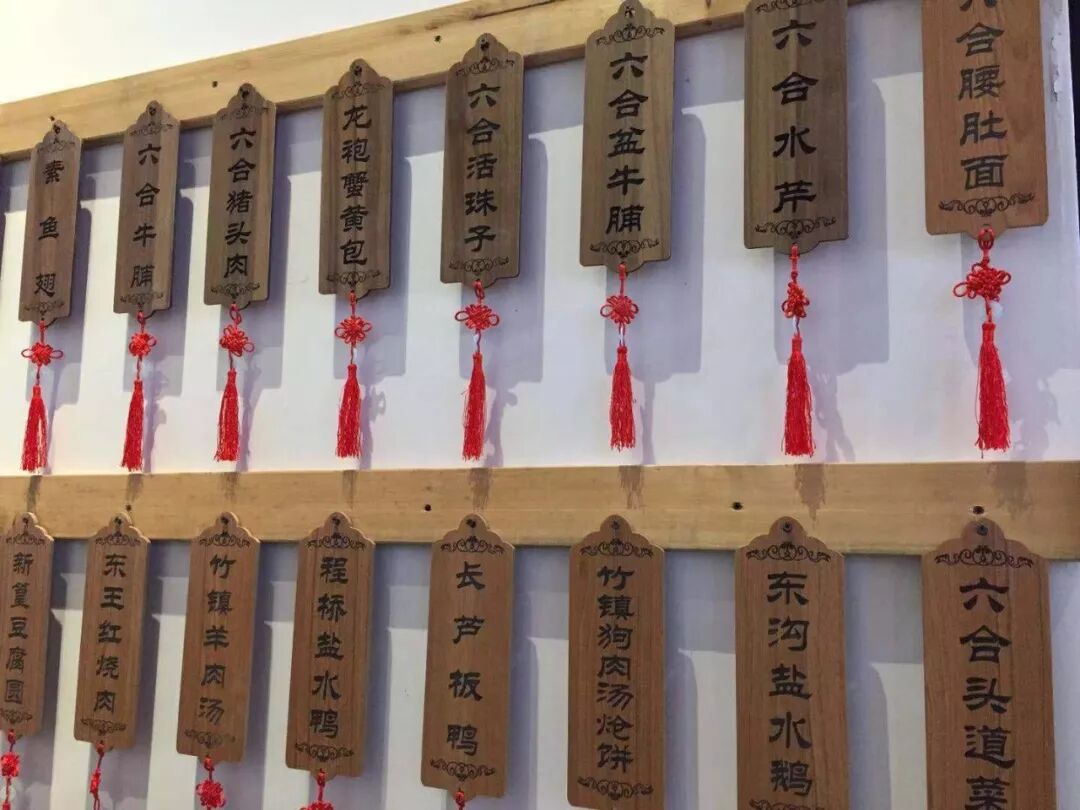 素鱼翅
六合牛脯
六合猪头肉
龙袍蟹黄包
六合活珠子
六合盆牛脯
六合水芹
六合腰肚面
新篁豆腐圆
东王红烧肉
竹镇羊肉汤
程桥盐水鸭
长芦板鸭
竹镇狗肉汤炝饼
东沟盐水鹅
六合头道菜